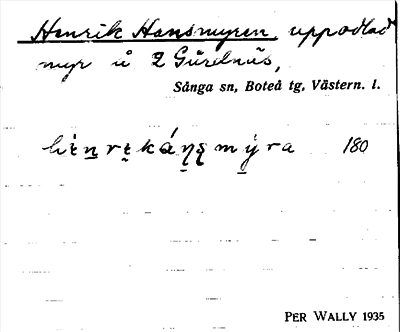 Henrik Hansmyren, uppodlad
myr å 2 Gårdnäs,
Sånga sn, Boteå tg, Västern. l.
180
PER WALLY 1935